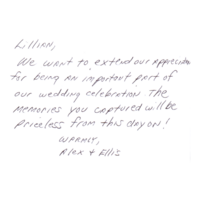 Lillian,
We want to extend our appreciation
for being an important part of
our wedding celebration. The
memories you captured will be
priceless from this day on!
Warmly,
Alex + Ellis